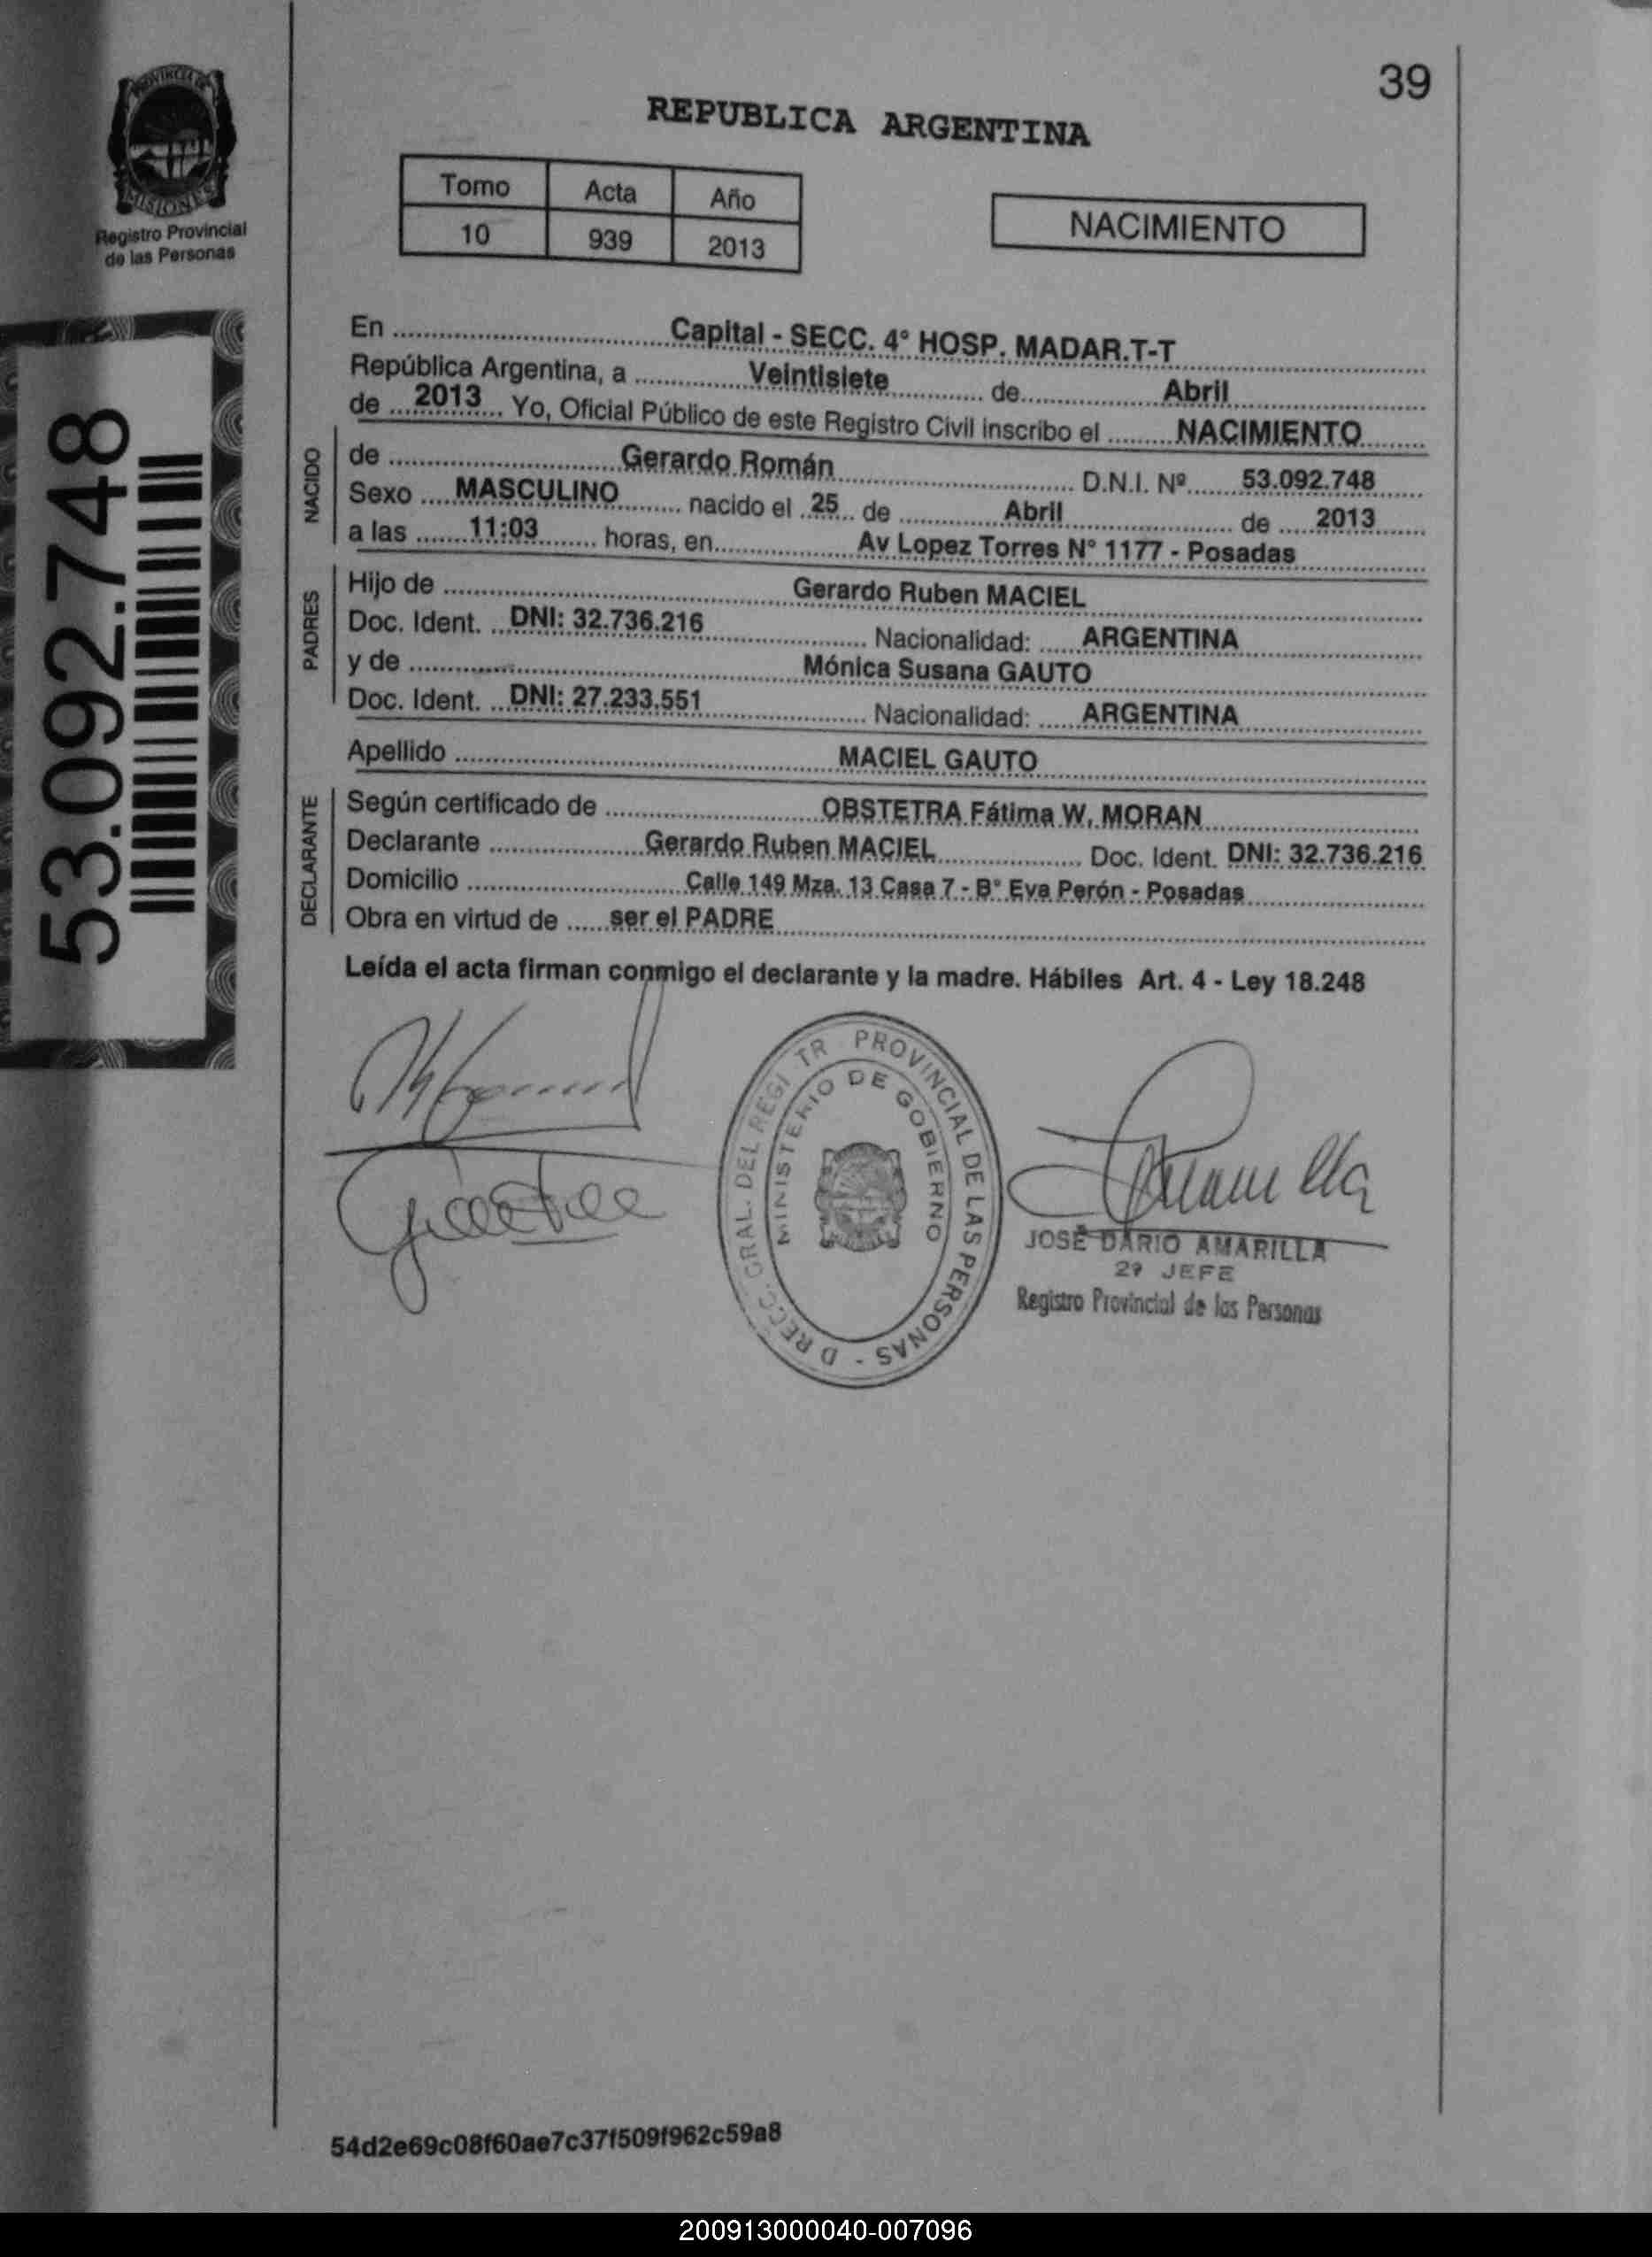 39
PROVINCIA DE
MISIONES
Registro Provincial
de las Personas
REPUBLICA ARGENTINA
Tomo Acta Año
10 939 2013
NACIMIENTO
53.092.748
En Capital - SECC. 4° HOSP. MADAR.T-T
República Argentina, a Veintisiete de Abril
de 2013 Yo, Oficial Público de este Registro Civil inscribo el NACIMIENTO
NACIDO
de Gerardo Román D.N.I. Nº 53.092.748
Sexo MASCULINO nacido el 25 de Abril de 2013
a las 11:03 horas, en Av Lopez Torres N° 1177 - Posadas
PADRES
Hijo de Gerardo Ruben MACIEL
Doc. Ident. DNI: 32.736.216 Nacionalidad: ARGENTINA
y de Mónica Susana GAUTO
Doc. Ident. DNI: 27.233.551 Nacionalidad: ARGENTINA
Apellido MACIEL GAUTO
DECLARANTE
Según certificado de OBSTETRA Fátima W. MORAN
Declarante Gerardo Ruben MACIEL Doc. Ident. DNI: 32.736.216
Domicilio Calle 149 Mza. 13 Casa 7 - B° Eva Perón - Posadas
Obra en virtud de ser el PADRE
Leída el acta firman conmigo el declarante y la madre. Hábiles Art. 4 - Ley 18.248
D RECC. GRAL. DEL REGI TR PROVINCIAL DE LAS PERSONAS -
MINISTERIO DE GOBIERNO
JOSÉ DARIO AMARILLA
2º JEFE
Registro Provincial de las Personas
54d2e69c08f60ae7c37f509f962c59a8
200913000040-007096